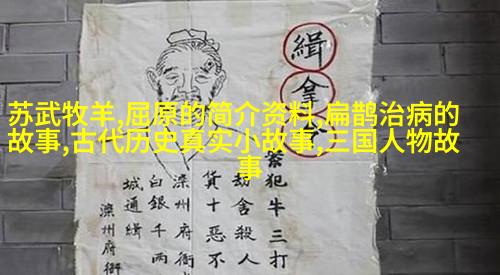 苏武牧羊,屈原的简介资料,扁鹊治病的
故事,古代历史真实小故事,三国人物故
事
緝拿令
案犯牛三打
劫舍殺人
貨十惡不
滦州府衙
白銀千两
城通緝
滦州府衙